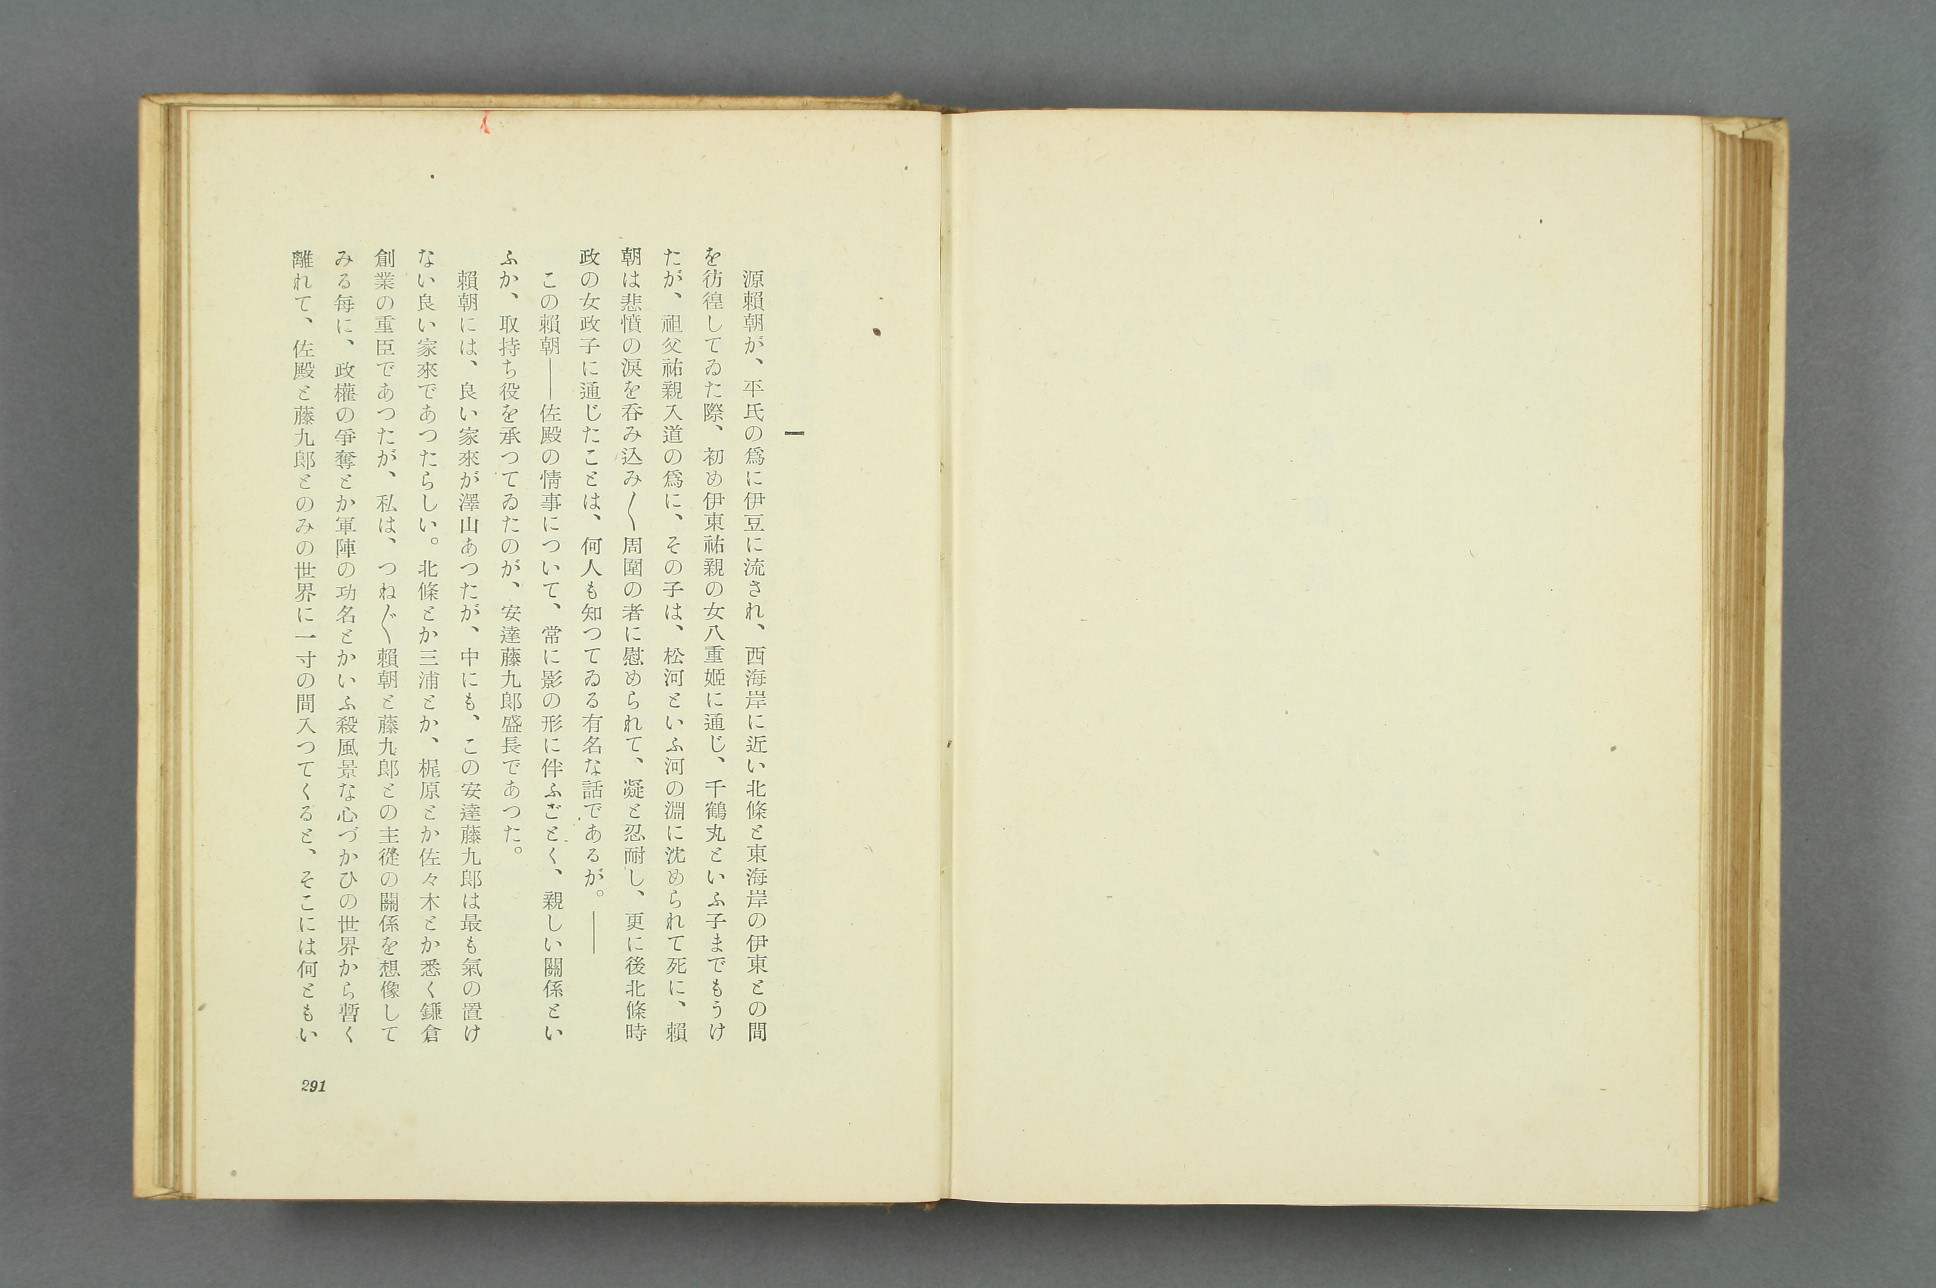 一
源賴朝が、平氏の爲に伊豆に流され、西海岸に近い北條と東海岸の伊東との間
を彷徨してゐた際、初め伊東祐親の女八重姬に通じ、千鶴丸といふ子までもうけ
たが、祖父祐親入道の爲に、その子は、松河といふ河の淵に沈められて死に、賴
朝は悲憤の淚を呑み込み〳〵周圍の者に慰められて、凝と忍耐し、更に後北條時
政の女政子に通じたことは、何人も知つてゐる有名な話であるが。――
この賴朝――佐殿の情事について、常に影の形に伴ふごとく、親しい關係とい
ふか、取持ち役を承つてゐたのが、安達藤九郞盛長であつた。
賴朝には、良い家來が澤山あつたが、中にも、この安達藤九郞は最も氣の置け
ない良い家來であつたらしい。北條とか三浦とか、梶原とか佐々木とか悉く鎌倉
創業の重臣であつたが、私は、つね〴〵賴朝と藤九郞との主從の關係を想像して
みる每に、政權の爭奪とか軍陣の功名とかいふ殺風景な心づかひの世界から暫く
離れて、佐殿と藤九郞とのみの世界に一寸の間入つてくると、そこには何ともい
291